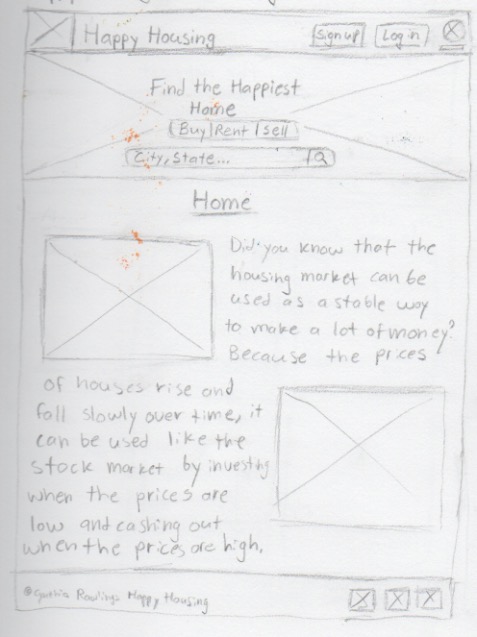 Happy Housing
Sign up
Log in
Find the Happiest
Home
Buy|Rent|Sell
City, State...
Home
Did you know that the
housing market can be
used as a stable way
to make a lot of money?
Because the prices
of houses rise and
fall slowly over time, it
can be used like the
stock market by investing
when the prices are
low and cashing out
when the prices are high.
Happy Housing